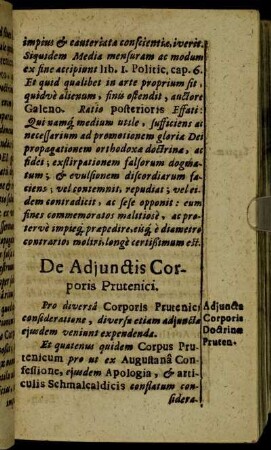 impius & cauteriata conscientia, iverit.
Siquidem Media mensuram ac modum
ex fine accipiunt lib. I. Politic. cap. 6.
Et quid qualibet in arte proprium sit,
quidvè alienum, finis ostendit, auctore
Galeno. Ratio posterioris Effati:
Qui namq; medium utile, sufficiens ac
necessarium ad promotionem gloriæ Dei
propagationem orthodoxæ doctrinæ, ac
fidei; exstirpationem falsorum dogma-
tum; & evulsionem discordiarum fa-
ciens; vel contemnit, repudiat; vel ei-
dem contradicit, ac sese opponit: eum
fines commemoratos malitiosè, ac pro-
tervè impieq; præpedire, eiiq; è diametro
contrarios moliri, longè certissimum est.
De Adjunctis Cor-
poris Prutenici.
Pro diversâ Corporis Prutenici
consideratione, diversa etiam adjuncta
ejusdem veniunt expendenda.
Et quatenus quidem Corpus Pru-
tenicum pro ut ex Augustanâ Con-
fessione, ejusdem Apologia, & arti-
culis Schmalcaldicis conflatum con-
sidera-
Adjuncta
Corporis
Doctrinæ
Pruten.